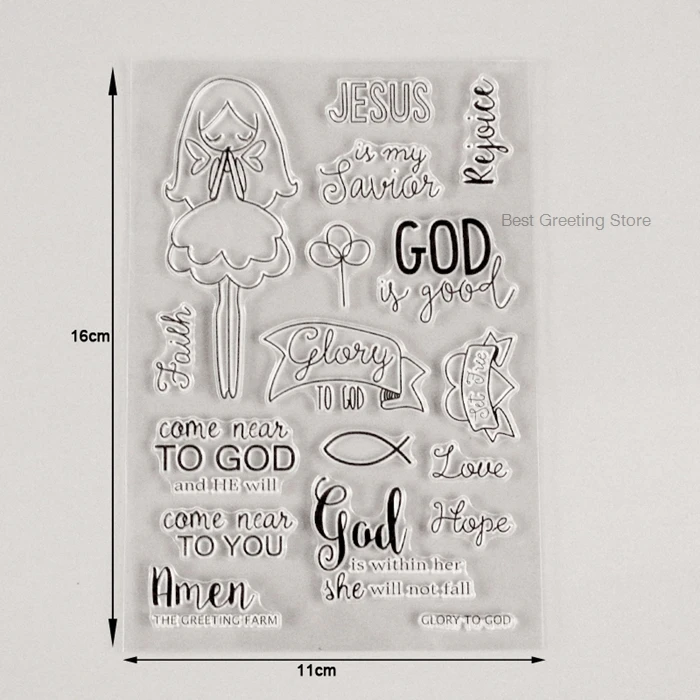 JESUS
Rejoice
is my
Savior
Best Greeting Store
GOD
is good
16cm
Faith
Glory
TO GOD
Set Free
come near
TO GOD
and HE will
Love
come near
TO YOU
God
is within her
she will not fall
Hope
Amen
THE GREETING FARM
GLORY TO GOD
11cm